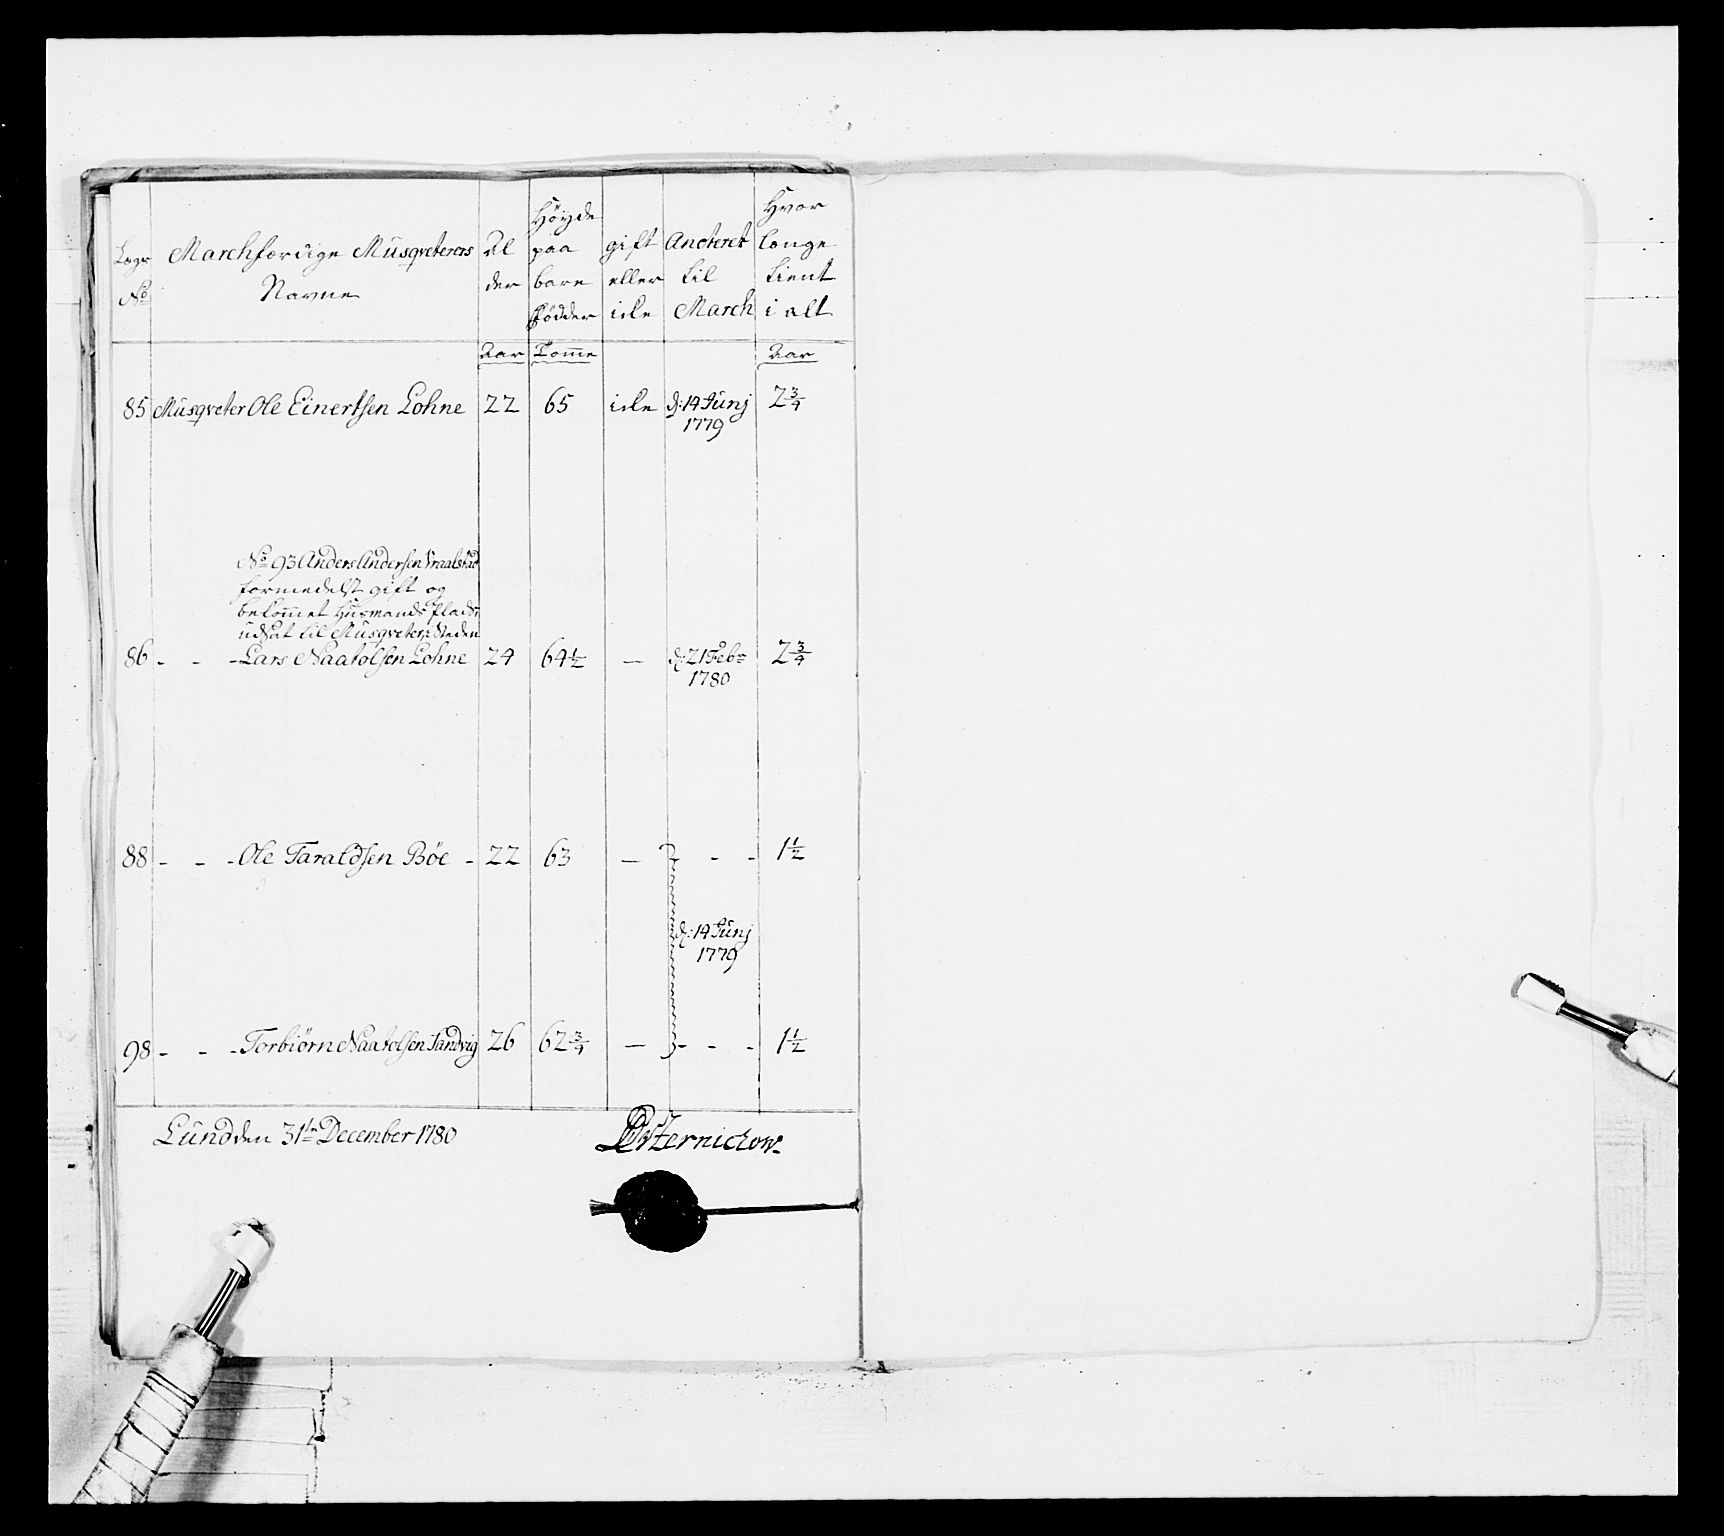 Lægs No
Marchfærdige Musqveterers Navne
Al der
Höyde paa bare Fødder
gift eller icke
Anoteret til March
Hvor længe tient i alt
Aar Tomme Aar
85 Musqveter Ole Einertsen Lohne 22 65 icke d: 14 Junj 2 3/4
1779
No 93 Anders Andersen Vraalstad
formedelst gift og
bekommet Husmands Plads
udsat til Musqveter, i Steden
86 - - - Lars Naatolsen Lohne 24 64 1/2 — d: 21 Febr 2 3/4
1780
88 - - - Ole Taraldsen Böe - 22 63 — - - - 1 1/2
d: 14 Junj
1779
98 - - - Torbiörn Naatolsen Sandvig 26 62 3/4 — - - - 1 1/2
Lund den 31te December 1780